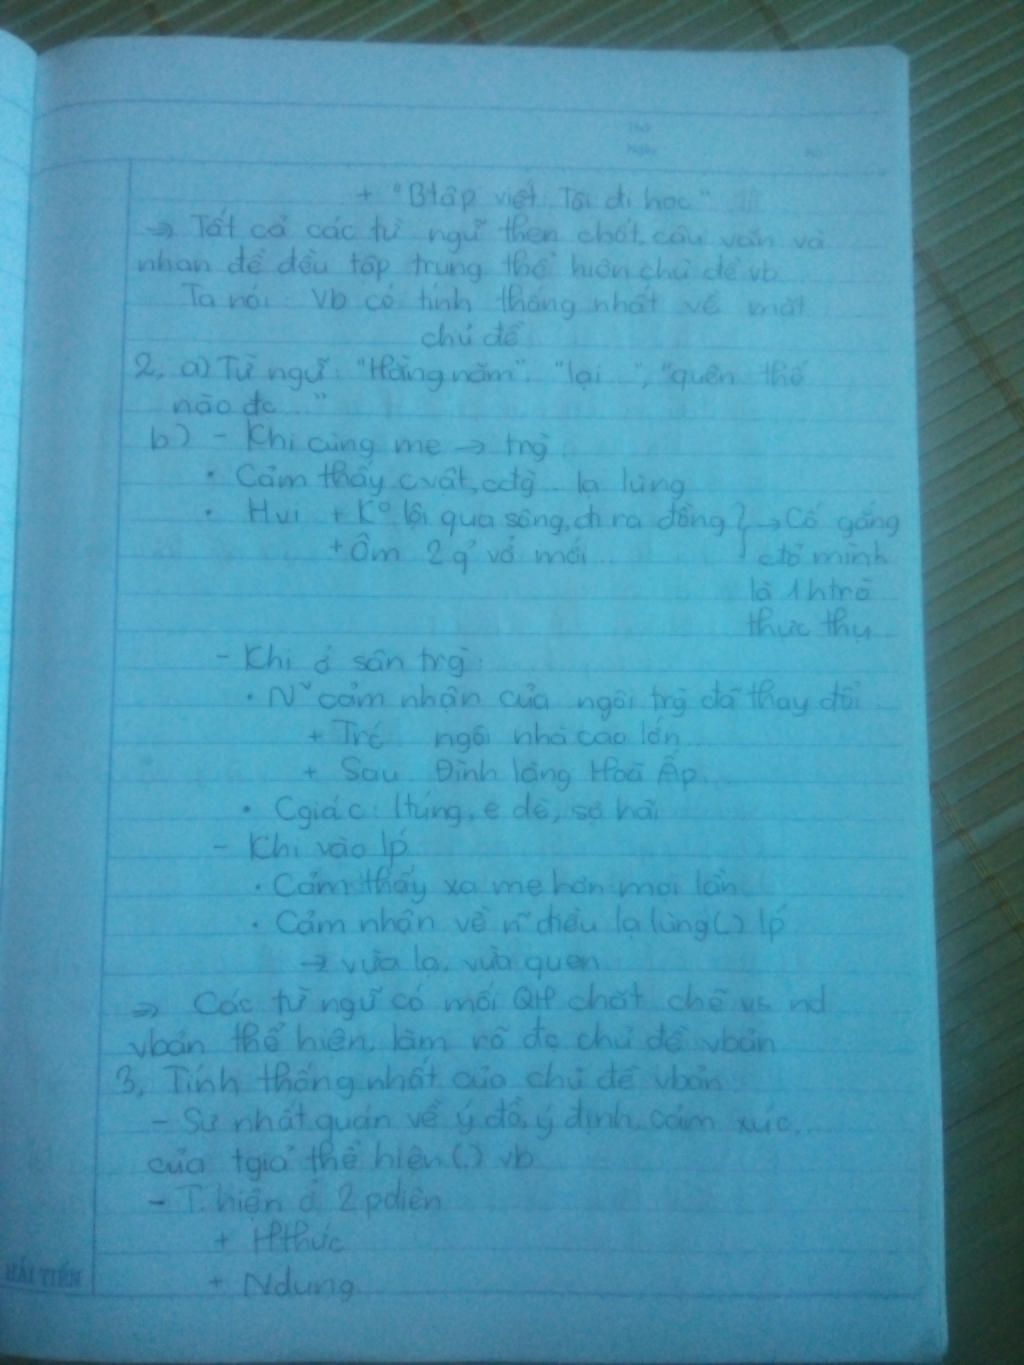 Thứ
Ngày
No
+ "Btập viết: Tôi đi học"
=> Tất cả các từ ngữ then chốt, câu văn và
nhan đề đều tập trung thể hiện chủ đề vb
Ta nói: Vb có tính thống nhất về mặt
chủ đề
2, a) Từ ngữ: "Hằng năm", "lại...", "quên thế
nào đc..."
b) - Khi cùng mẹ -> trg`:
• Cảm thấy cvật, cđg`... lạ lùng
• Hvi + Ko lội qua sông, đi ra đồng } -> Cố gắng
+ Ôm 2 q' vở mới... ctỏ mình
là 1 htrò
thực thụ
- Khi ở sân trg`:
• N~ cảm nhận của ngôi trg` đã thay đổi
+ Trc' ngôi nhà cao lớn...
+ Sau Đình làng Hoà Ấp...
• Cgiác: ltúng, e dè, sợ hãi
- Khi vào lp'
• Cảm thấy xa mẹ hơn mọi lần
• Cảm nhận về n~ điều lạ lùng (.) lp'
-> vừa lạ, vừa quen
=> Các từ ngữ có mối QH chặt chẽ vs nd
vbản thể hiện, làm rõ đc chủ đề vbản
3, Tính thống nhất của chủ đề vbản
- Sự nhất quán về ý đồ, ý định, cảm xúc...
của tgiả thể hiện (.) vb
- T.hiện ở 2 pdiện
+ Hthức
+ Ndung
HẢI TIẾN